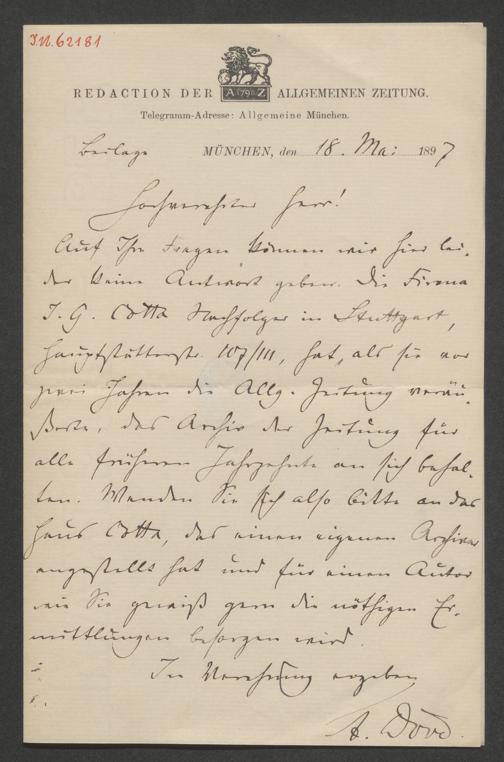 I.N. 62181
A 1798 Z
REDACTION DER ALLGEMEINEN ZEITUNG.
Telegramm-Adresse: Allgemeine München.
Beilage MÜNCHEN, den 18. Mai 1897
Hochverehrter Herr!
Auf Ihre Fragen können wir hier lei-
der keine Antwort geben. Die Firma
J. G. Cotta Nachfolger in Stuttgart,
Hauptstätterstr. 107/III, hat, als sie vor
zwei Jahren die Allg. Zeitung veräu-
ßerte, das Archiv der Zeitung für
alle früheren Jahrzehnte an sich behal-
ten. Wenden Sie sich also bitte an das
Haus Cotta, das einen eigenen Archivar
angestellt hat und für einen Autor
wie Sie gewiß gern die nöthigen Er-
mittlungen besorgen wird.
In Verehrung ergeben
A. Dove.